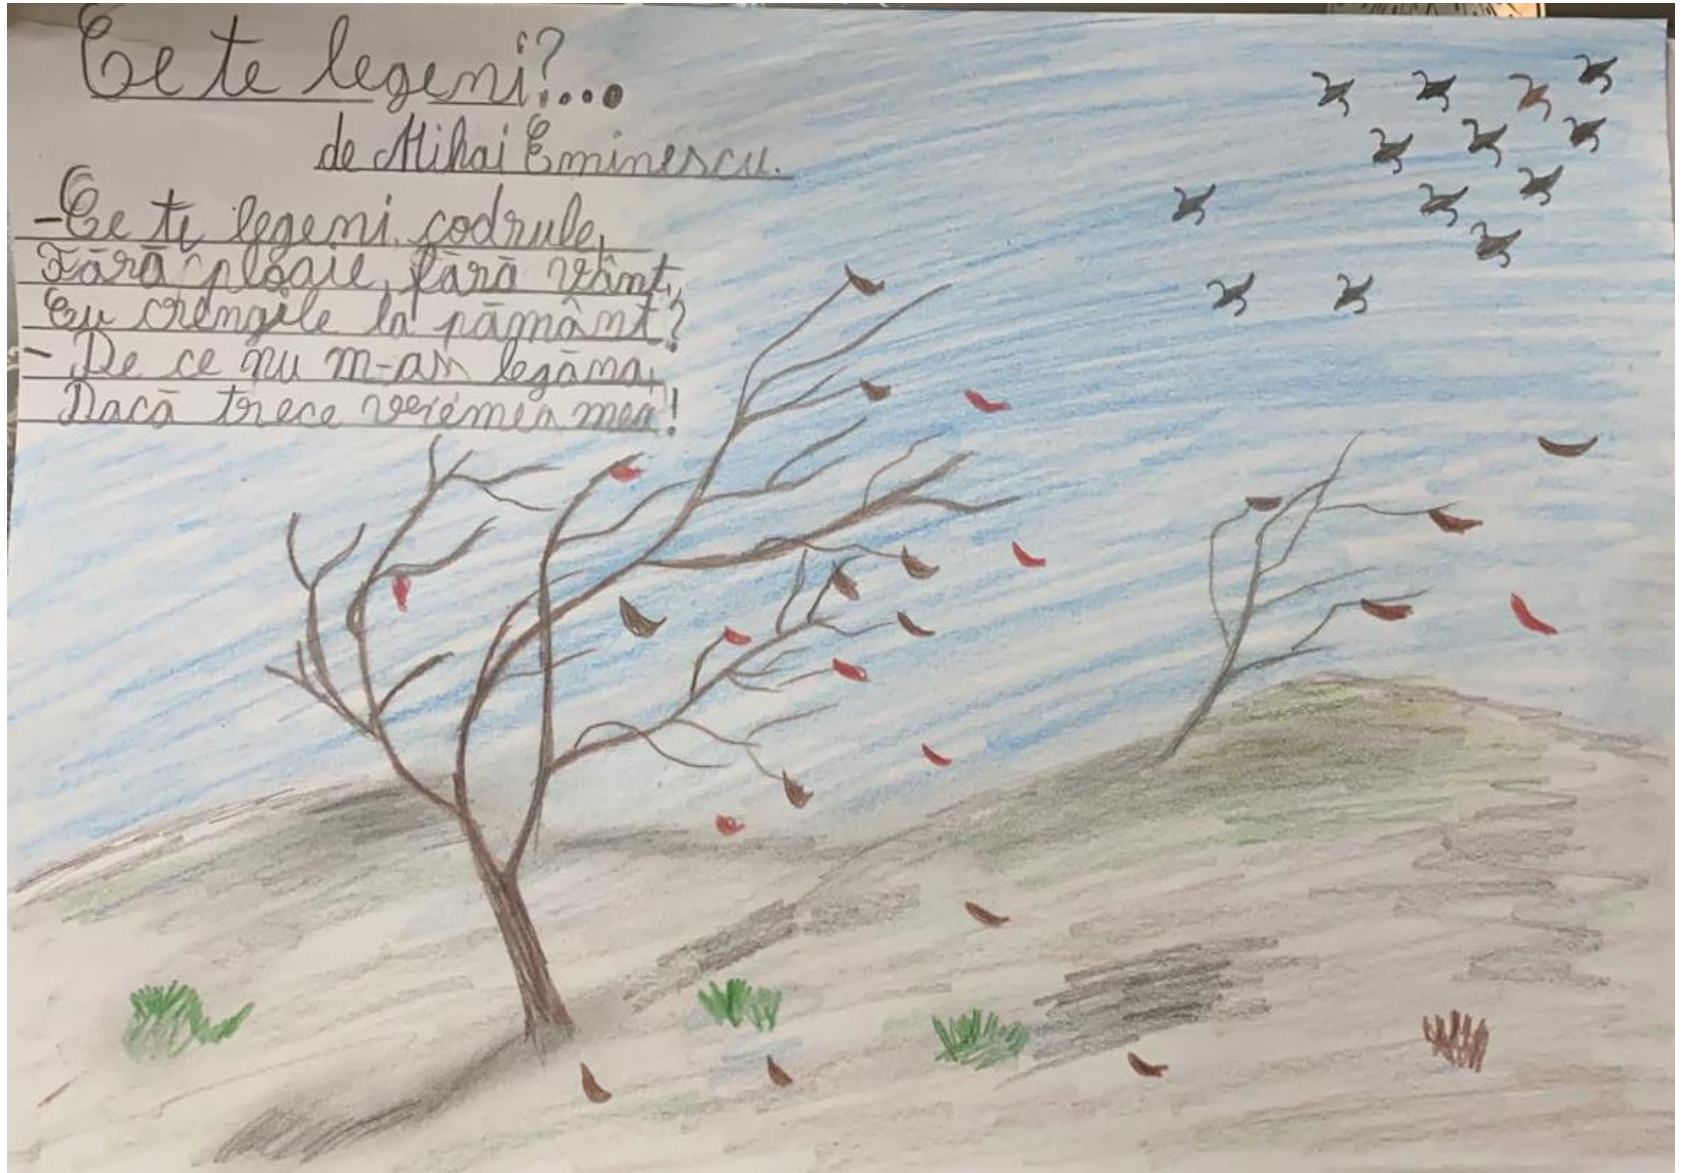 Ce te legeni?...
de Mihai Eminescu.
-Ce te legeni codrule,
Fără ploaie, fără vânt,
Cu crengile la pământ?
- De ce nu m-aș legăna,
Dacă trece vremea mea!